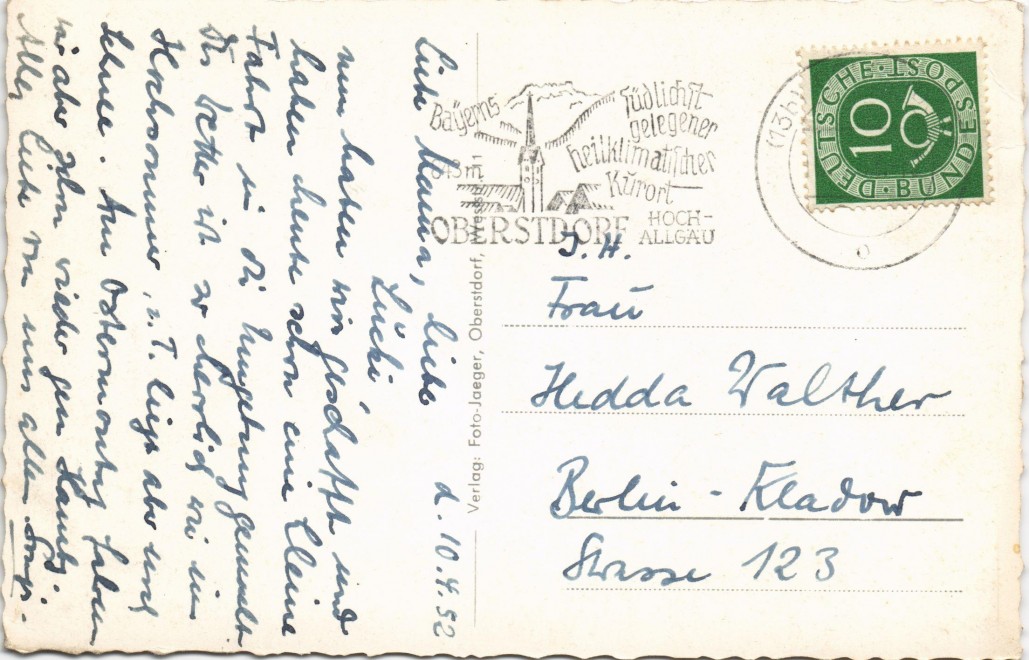 d. 10.4.52
Liebe Mama, liebe
Lücki,
nun haben wir geschafft und
haben heute schon eine kleine
Fahrt in die Umgebung gemacht
Das Wetter ist so herrlich wie im
Hochsommer, z.T. liegt aber noch
Schnee. Am Ostermontag fahren
wir aber schon wieder gen
Alles Liebe von uns allen
Bayerns
südlichst
gelegener
heilklimatischer
Kurort
OBERSTDORF
HOCH-
ALLGÄU
(13b)
DEUTSCHE BUNDESPOST
10
Verlag: Foto-Jaeger, Oberstdorf,
Frau
Hedda Walther
Berlin-Kladow
Strasse 123